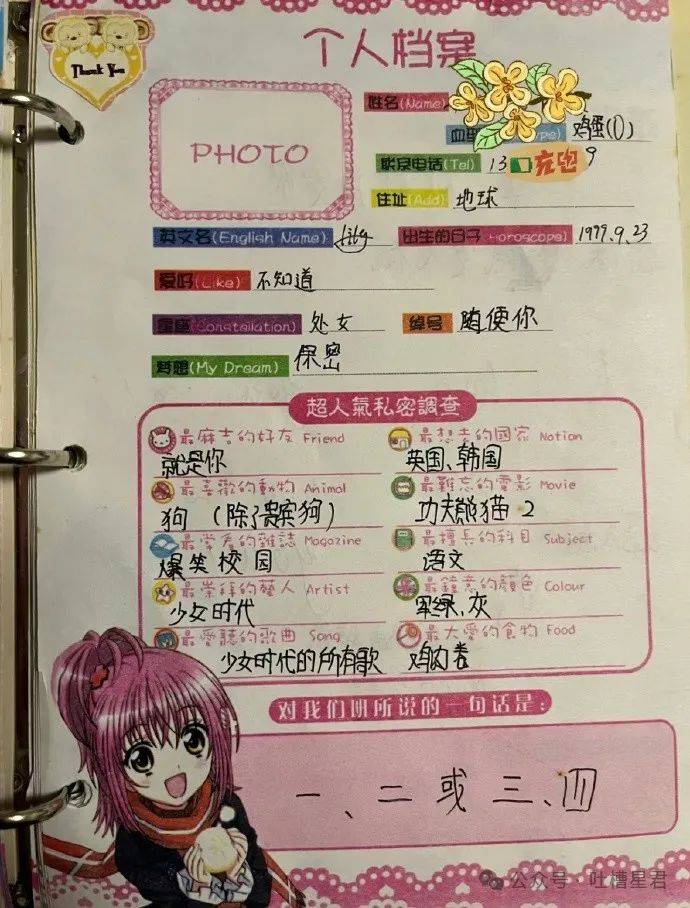 Thank You
个人档案
PHOTO
姓名(Name)
血型(Type) 鸡蛋(O)
联系电话(Tel) 13 充电 9
住址(Add) 地球
英文名(English Name) Lily 出生的日子(Horoscope) 1999.9.23
爱好(Like) 不知道
星座(Constellation) 处女 绰号 随便你
梦想(My Dream) 保密
超人氣私密調查
最麻吉的好友 Friend 最想去的國家 Nation
就是你 英国、韩国
最喜歡的動物 Animal 最難忘的電影 Movie
狗（除了贵宾狗） 功夫熊猫·2
最常看的雜誌 Magazine 最擅長的科目 Subject
爆笑校园 语文
最崇拜的藝人 Artist 最鍾意的顏色 Colour
少女时代 军绿、灰
最愛聽的歌曲 Song 最大愛的食物 Food
少女时代的所有歌 鸡肉卷
对我们班所说的一句话是:
一、二或三、四
公众号·吐槽星君